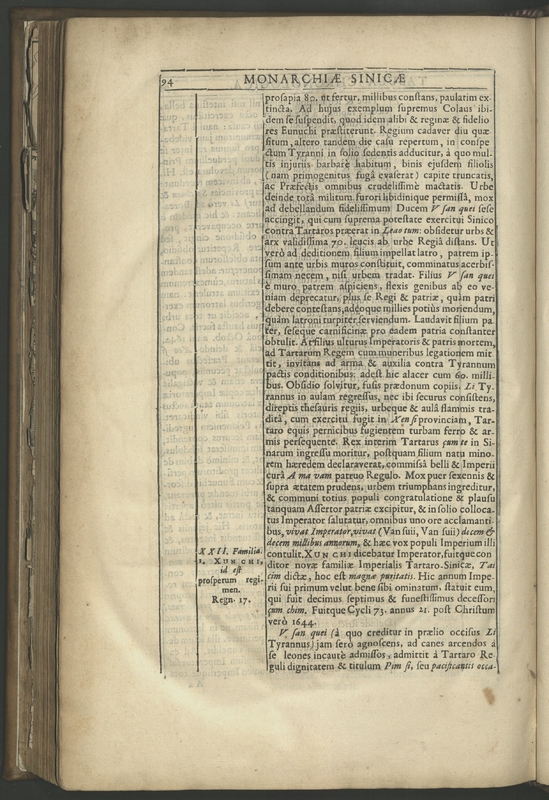 94
MONARCHIÆ SINICÆ
prosapia 80. ut fertur, millibus constans, paulatim ex-
tincta. Ad hujus exemplum supremus Colaus ibi-
dem se suspendit, quod idem alibi & reginæ & fidelio
res Eunuchi præstiterunt. Regium cadaver diu quæ
situm, altero tandem die casu repertum, in conspe
ctum Tyranni in solio sedentis adducitur, à quo mul-
tis injuriis barbarè habitum, binis ejusdem filiolis
(nam primogenitus fugâ evaserat) capite truncatis,
ac Præfectis omnibus crudelissimè mactatis. Urbe
deinde totâ militum furori libidinique permissâ, mox
ad debellandum fidelissimum Ducem V san quei sese
accingit, qui cum suprema potestate exercitui Sinico
contra Tartaros præerat in Leao tum: obsidetur urbs &
arx validissima 70. leucis ab urbe Regiâ distans. Ut
verò ad deditionem filium impellat latro, patrem ip-
sum ante urbis muros constituit, comminatus acerbis-
simam necem, nisi urbem tradat. Filius V san quei
è muro patrem aspiciens, flexis genibus ab eo ve-
niam deprecatur, plus se Regi & patriæ, quàm patri
debere contestans, adeoque millies potiùs moriendum,
quàm latroni turpiter serviendum. Laudavit filium pa-
ter, seseque carnificinæ pro eadem patria constanter
obtulit. At filius ulturus Imperatoris & patris mortem,
ad Tartarum Regem cum muneribus legationem mit
tit, invitans ad arma & auxilia contra Tyrannum
pactis conditionibus: adest hic alacer cum 60. milli-
bus. Obsidio solvitur, fusis prædonum copiis. Li Ty-
rannus in aulam regressus, nec ibi securus consistens,
direptis thesauris regiis, urbeque & aulâ flammis tra-
ditâ, cum exercitu fugit in Xen si provinciam, Tar-
taro equis pernicibus fugientem turbam ferro & ar-
mis persequente. Rex interim Tartarus çum te in Si-
narum ingressu moritur, postquam filium natu mino-
rem hæredem declaraverat, commissâ belli & Imperii
curâ A ma vam patruo Regulo. Mox puer sexennis &
supra ætatem prudens, urbem triumphans ingreditur,
& communi totius populi congratulatione & plausu
tanquam Assertor patriæ excipitur, & in solio colloca-
tus Imperator salutatur, omnibus uno ore acclamanti-
bus, vivat Imperator, vivat (Van sui, Van sui) decem &
decem millibus annorum, & hæc vox populi Imperium illi
contulit. XUN CHI dicebatur Imperator, fuitque con
ditor novæ familiæ Imperialis Tartaro-Sinicæ, Tai
cim dictæ, hoc est magnæ puritatis. Hic annum Impe-
rii sui primum velut bene sibi ominatum, statuit eum,
qui fuit decimus septimus & funestissimus decessori
çum chim. Fuitque Cycli 73. annus 21. post Christum
verò 1644.
XXII. Familia.
1. XUN CHI,
id est
prosperum regi-
men.
Regn. 17.
V san quei (à quo creditur in prælio occisus Li
Tyrannus) jam serò agnoscens, ad canes arcendos à
se leones incautè admissos, admittit à Tartaro Re-
guli dignitatem & titulum Pim si, seu pacificantis occa-